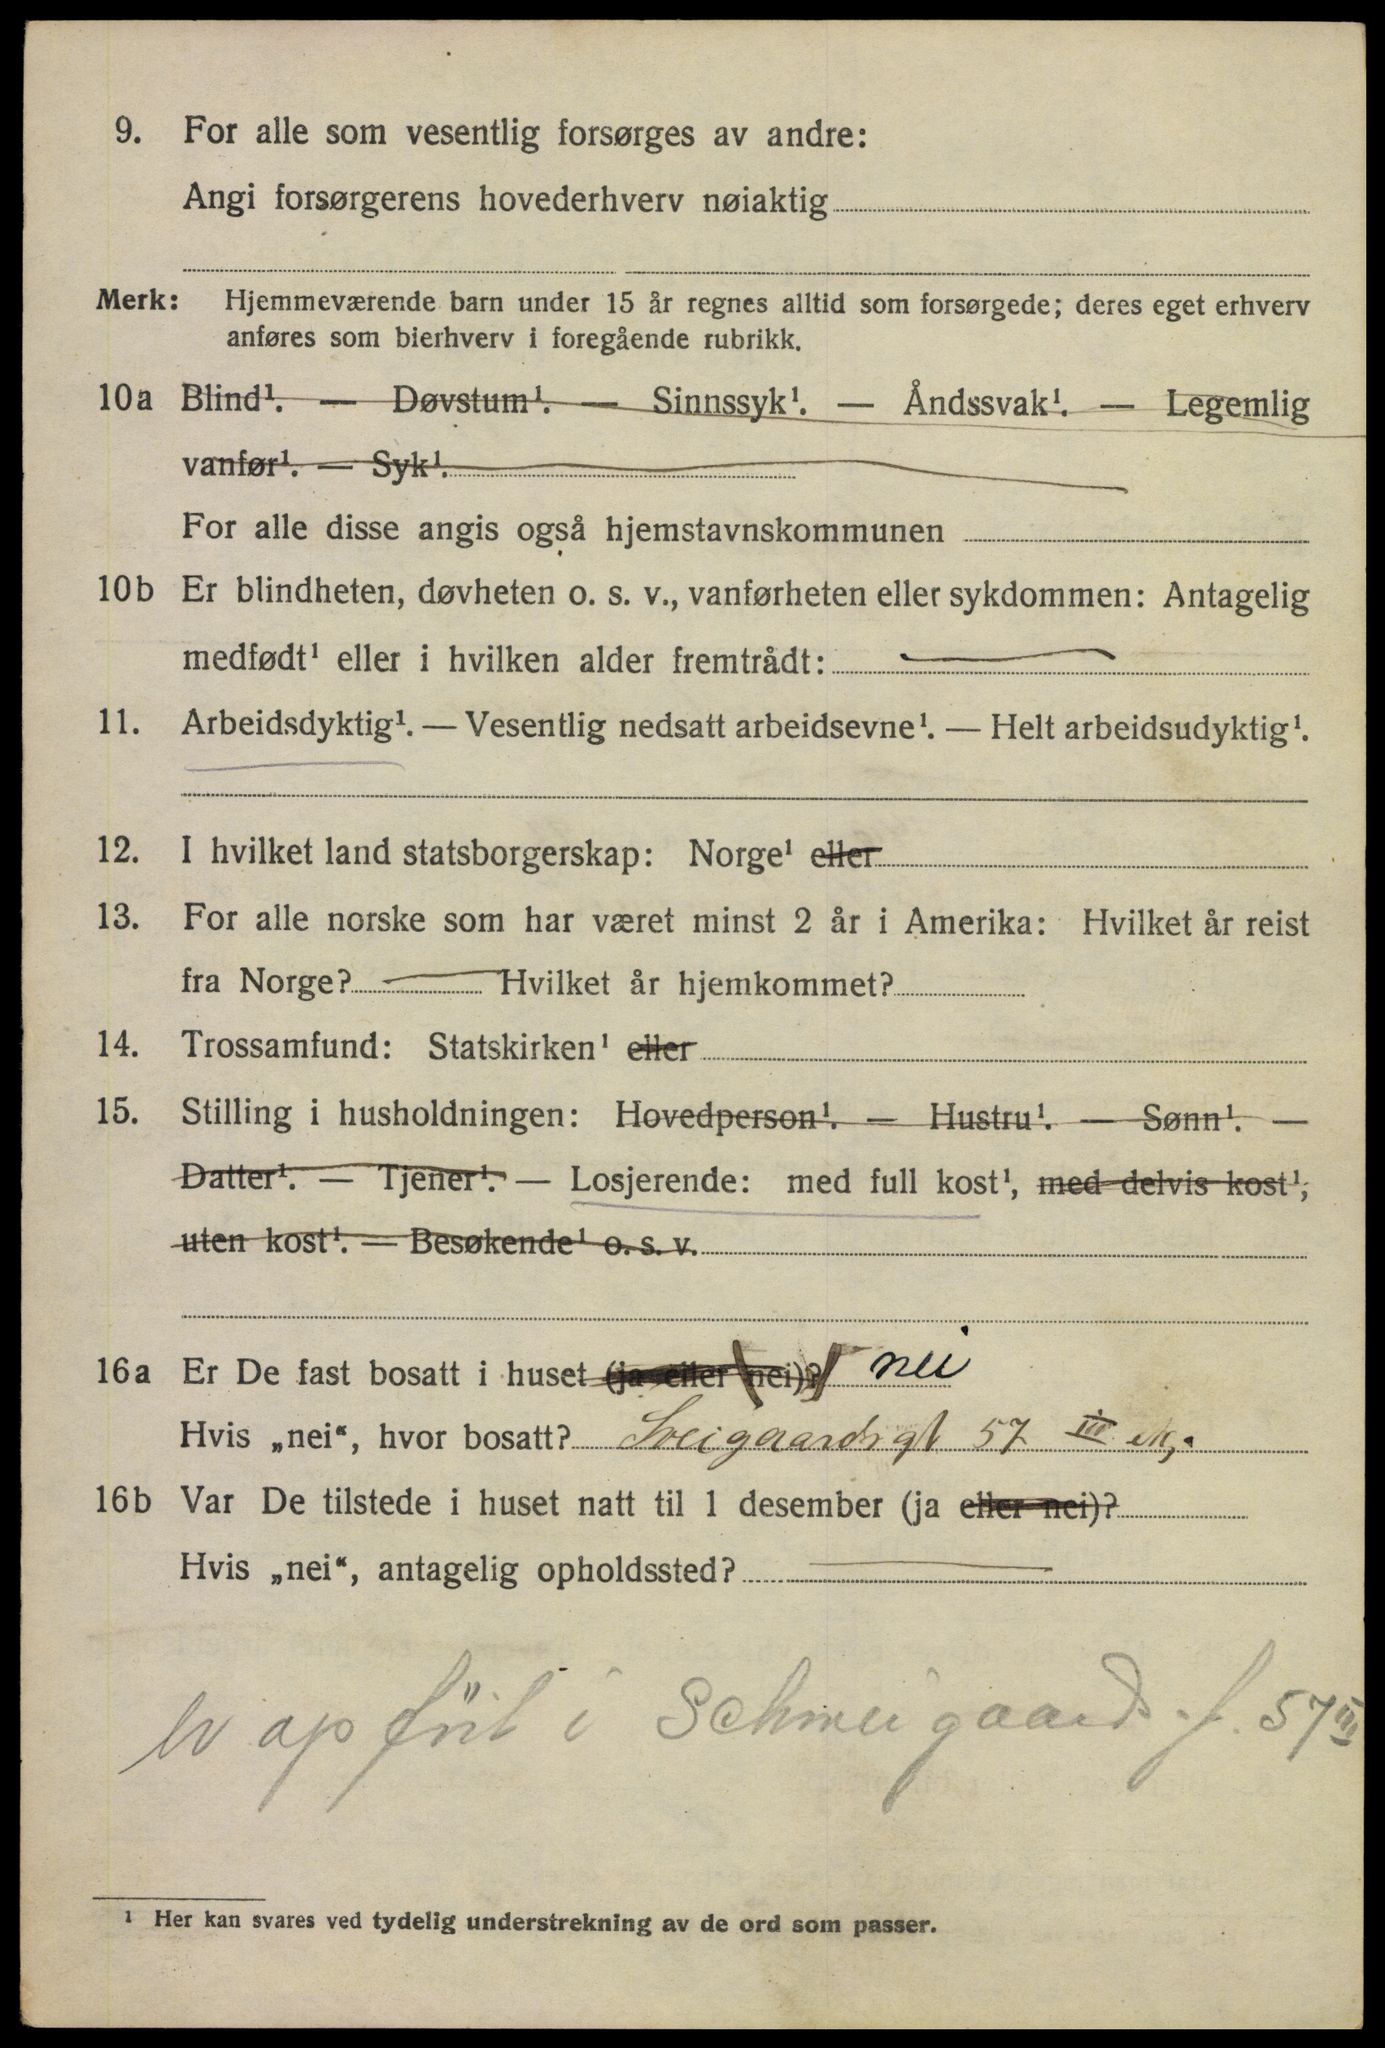 9. For alle som vesentlig forsørges av andre:
Angi forsørgerens hovederhverv nøiaktig
Merk: Hjemmeværende barn under 15 år regnes alltid som forsørgede; deres eget erhverv
anføres som bierhverv i foregående rubrikk.
10a Blind¹. — Døvstum¹. — Sinnssyk¹. — Åndssvak¹. — Legemlig
vanfør¹. — Syk¹.
For alle disse angis også hjemstavnskommunen
10b Er blindheten, døvheten o. s. v., vanførheten eller sykdommen: Antagelig
medfødt¹ eller i hvilken alder fremtrådt:
11. Arbeidsdyktig¹. — Vesentlig nedsatt arbeidsevne¹. — Helt arbeidsudyktig¹.
12. I hvilket land statsborgerskap: Norge¹ eller
13. For alle norske som har været minst 2 år i Amerika: Hvilket år reist
fra Norge? Hvilket år hjemkommet?
14. Trossamfund: Statskirken¹ eller
15. Stilling i husholdningen: Hovedperson¹. — Hustru¹. — Sønn¹. —
Datter¹. — Tjener¹. — Losjerende: med full kost¹, med delvis kost¹,
uten kost¹. — Besøkende¹ o. s. v.
16a Er De fast bosatt i huset (ja eller nei)? nei
Hvis „nei“, hvor bosatt? Sveigaardsgt 57 III
16b Var De tilstede i huset natt til 1 desember (ja eller nei)?
Hvis „nei“, antagelig opholdssted?
i Schweigaards 57 III
¹ Her kan svares ved tydelig understrekning av de ord som passer.